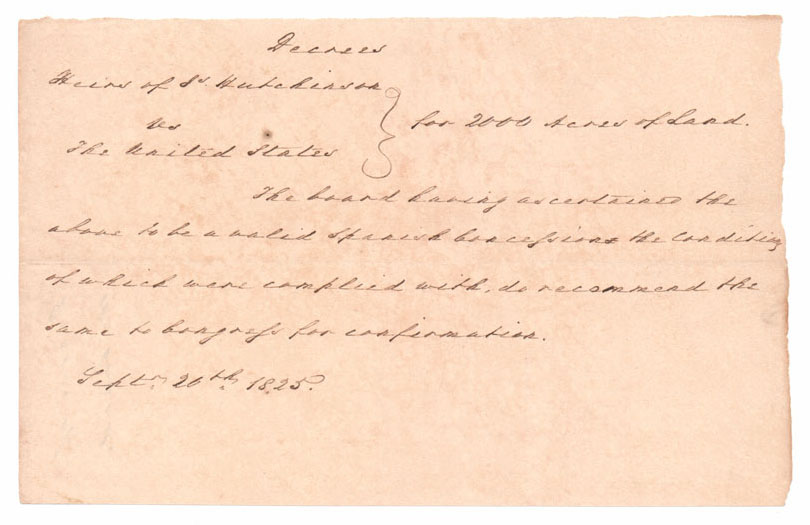 Decrees
Heirs of Js. Hutchinson
vs
The United States
for 2000 Acres of Land.
The board having ascertained the
above to be a valid Spanish Concession the Condition
of which were complied with, do recommend the
same to Congress for confirmation.
Septr. 20th. 1825.